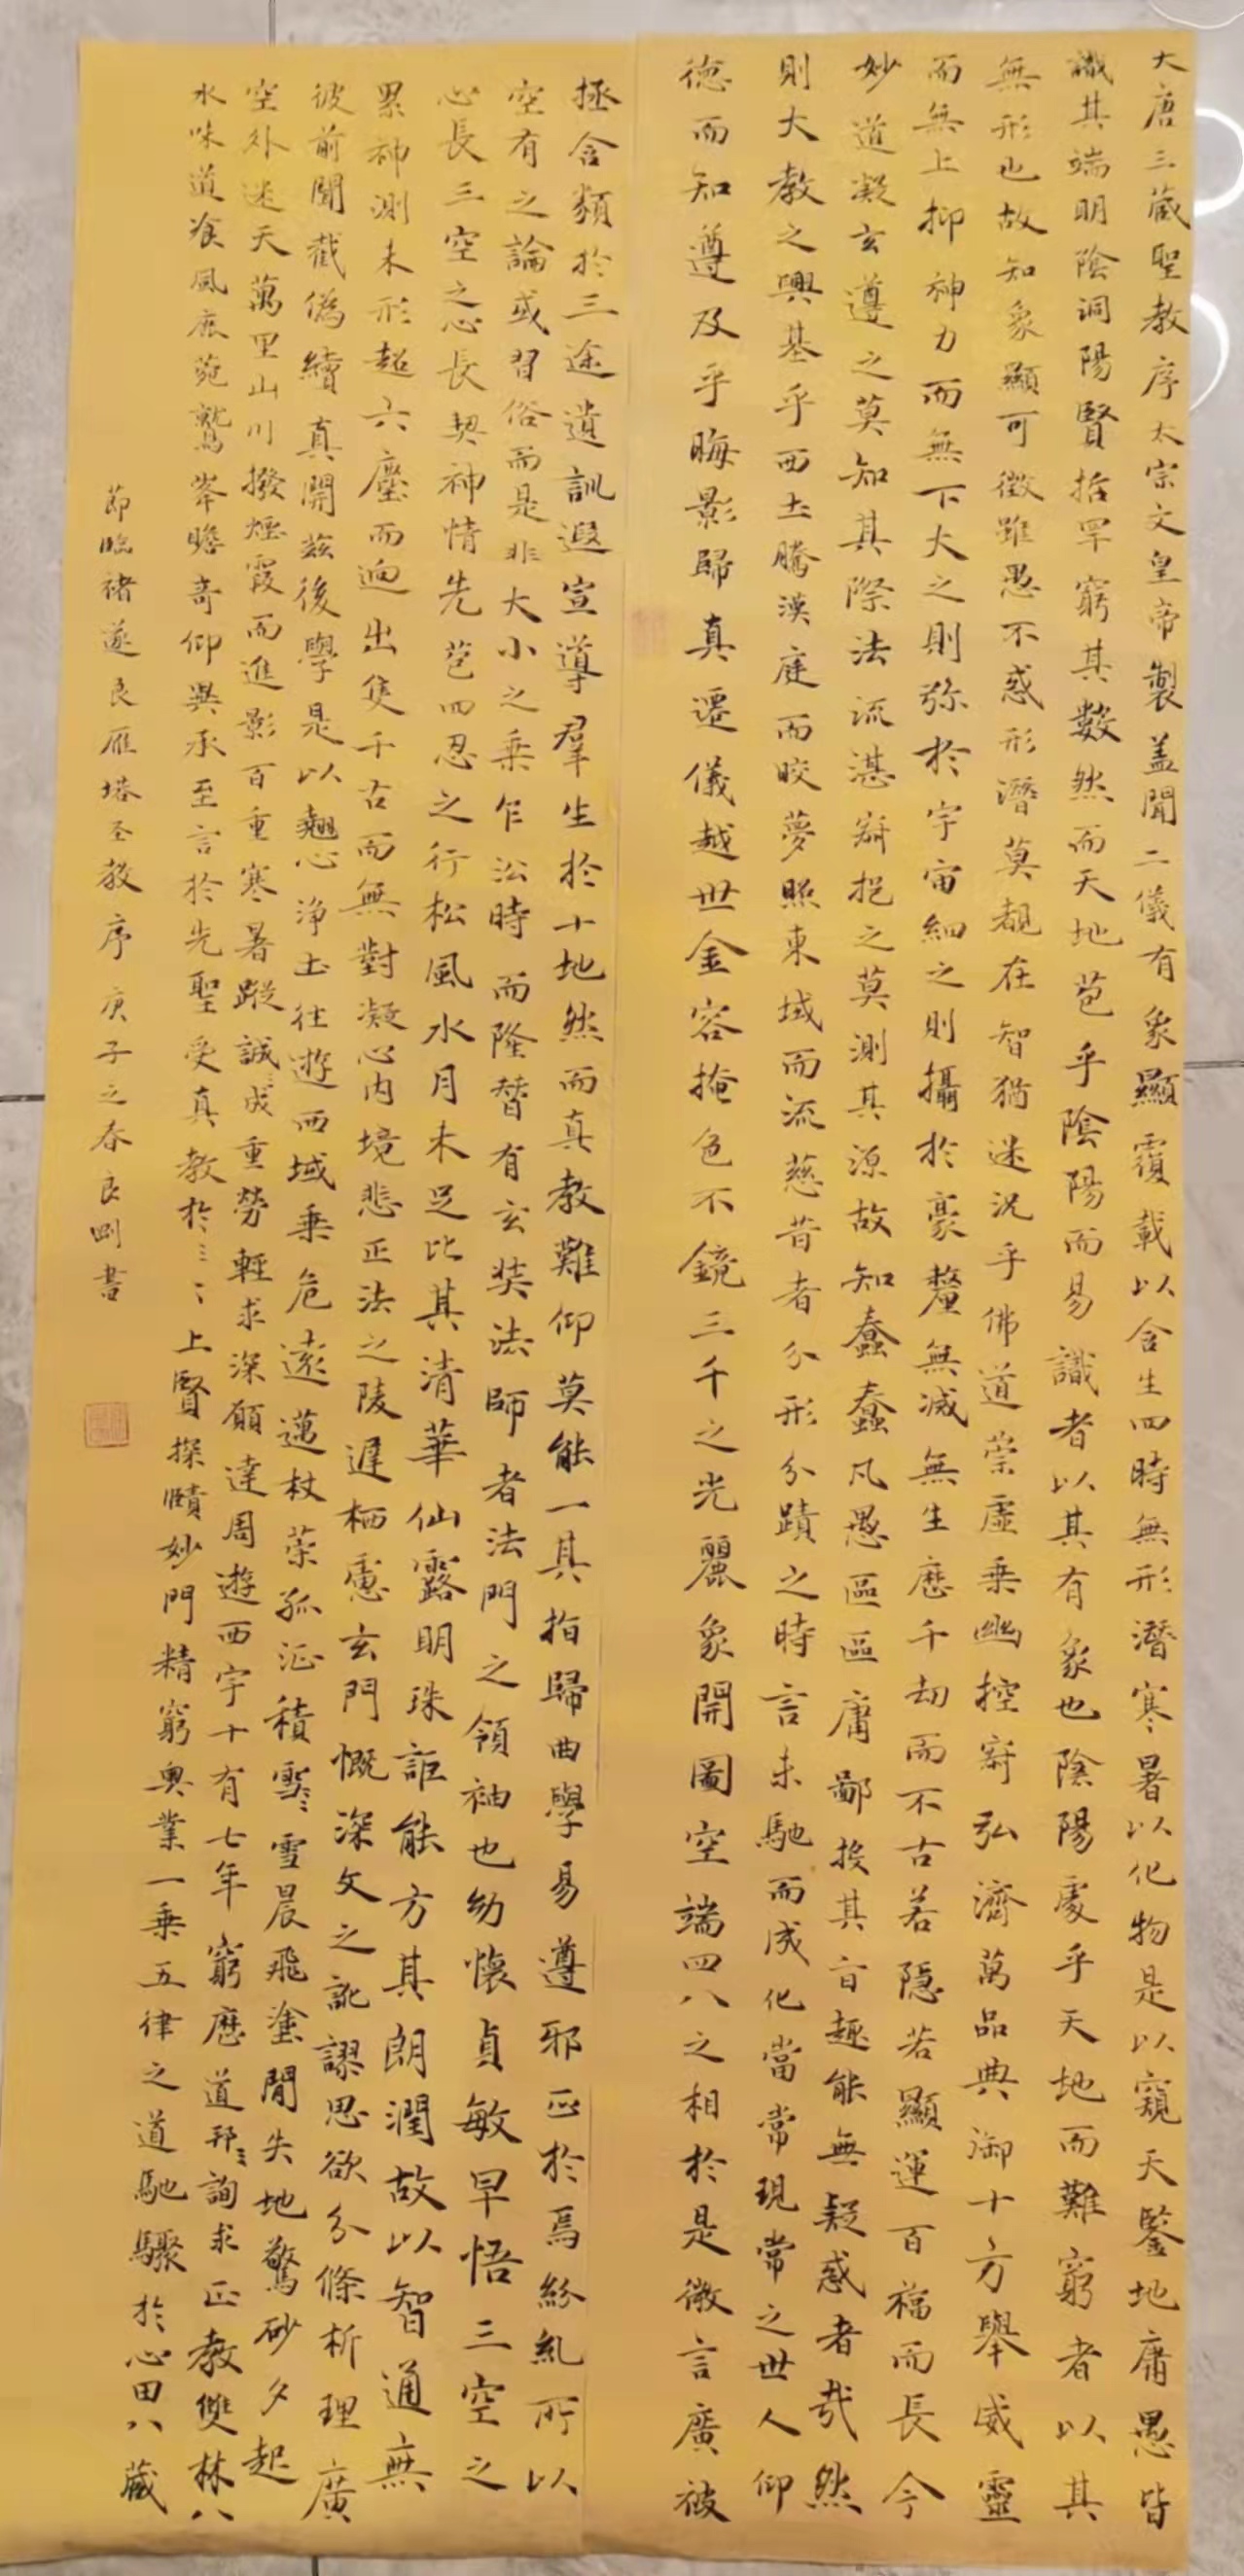 大唐三藏聖教序太宗文皇帝製蓋聞二儀有象顯覆載以含生四時無形潛寒暑以化物是以窺天鑒地庸愚皆
識其端明陰洞陽賢哲罕窮其數然而天地苞乎陰陽而易識者以其有象也陰陽處乎天地而難窮者以其
無形也故知象顯可徵雖愚不惑形潛莫覩在智猶迷況乎佛道崇虛乘幽控寂弘濟萬品典御十方舉威靈
而無上抑神力而無下大之則彌於宇宙細之則攝於豪釐無滅無生歷千劫而不古若隱若顯運百福而長今
妙道凝玄遵之莫知其際法流湛寂挹之莫測其源故知蠢蠢凡愚區區庸鄙投其旨趣能無疑惑者哉然
則大教之興基乎西土騰漢庭而皎夢照東域而流慈昔者分形分蹟之時言未馳而成化當常現常之世人仰
德而知遵及乎晦影歸真遷儀越世金容掩色不鏡三千之光麗象開圖空端四八之相於是微言廣被
拯含類於三途遺訓遐宣導羣生於十地然而真教難仰莫能一其指歸曲學易遵邪正於焉紛糺所以
空有之論或習俗而是非大小之乘乍沿時而隆替有玄奘法師者法門之領袖也幼懷貞敏早悟三空之
心長三空之心長契神情先苞四忍之行松風水月未足比其清華仙露明珠詎能方其朗潤故以智通無
累神測未形超六塵而逈出隻千古而無對凝心內境悲正法之陵遲栖慮玄門慨深文之訛謬思欲分條析理廣
彼前聞截偽續真開茲後學是以翹心淨土往遊西域乘危遠邁杖策孤征積雪〻雪晨飛塗閒失地驚砂夕起
空外迷天萬里山川撥煙霞而進影百重寒暑躡誠成重勞輕求深願達周遊西宇十有七年窮歷道邦〻詢求正教雙林八
水味道飡風鹿菀鷲峯瞻奇仰異承至言於先聖受真教於〻〻上賢探賾妙門精窮奧業一乘五律之道馳驟於心田八藏
節臨褚遂良雁塔圣教序庚子之春良剛書